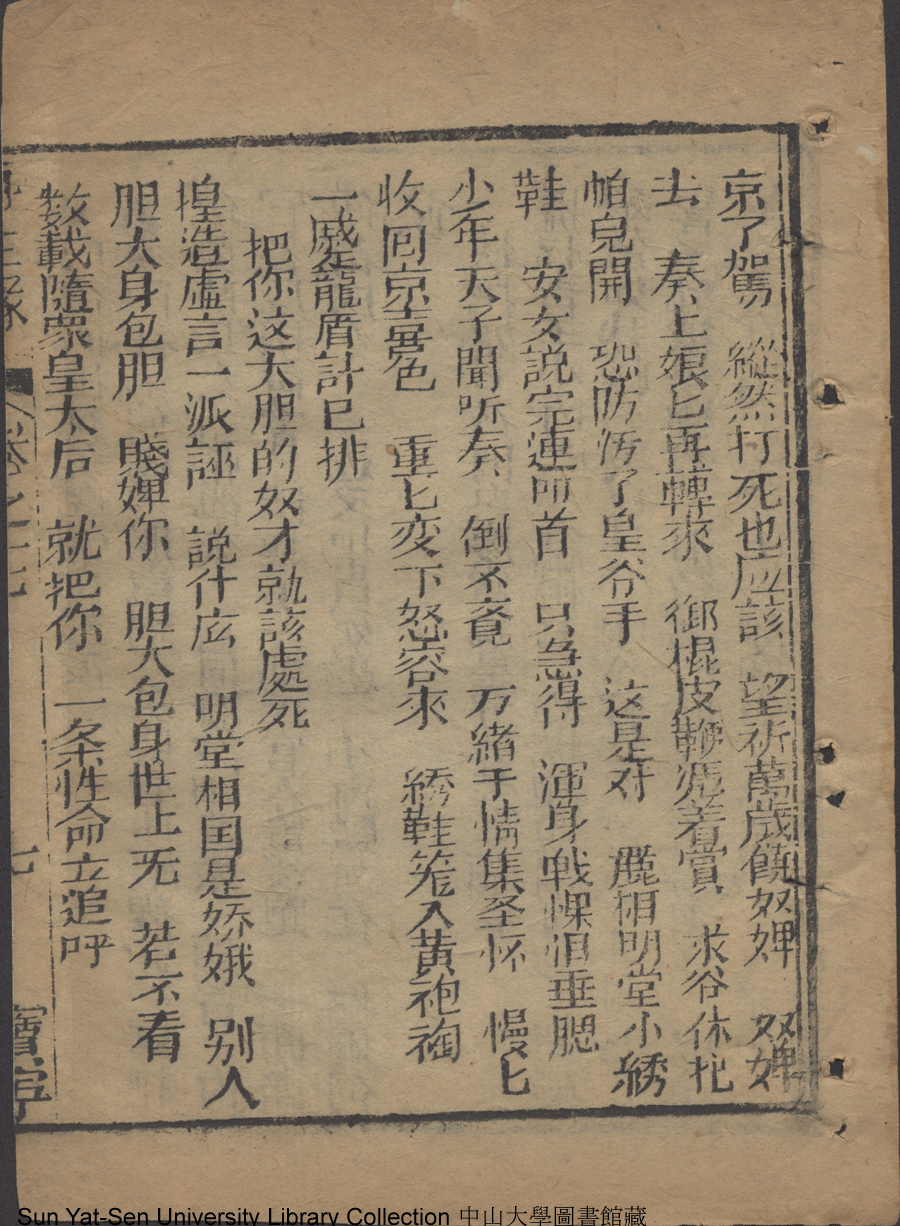 京了駕　縱然打死也应該　望祈萬歲饒奴婢　奴婢
去　奏上娘匕再轉來　御棍皮鞭凴着賞　求谷休把
帕皃開　恐防汚了皇谷手　这是对　麗相明堂小綉
鞋　安女説完連叩首　只急得　渾身战慄泪垂腮
少年天子聞听奏　倒不覔　万緒千情集圣怀　慢匕
收囘京喜色　重匕变下怒容來　綉鞋笼入黄袍裪
一慼龍眉計已排
把你这大胆的奴才就該處死
揘造虛言一派誣　説什庅　明堂相国是娇娥　别人
胆大身包胆　賤婢你　胆大包身世上旡　若不看
数載隨衆皇太后　就把你　一条性命立追呼
卷之十七
七
寶寧
Sun Yat-Sen University Library Collection 中山大學圖書館藏